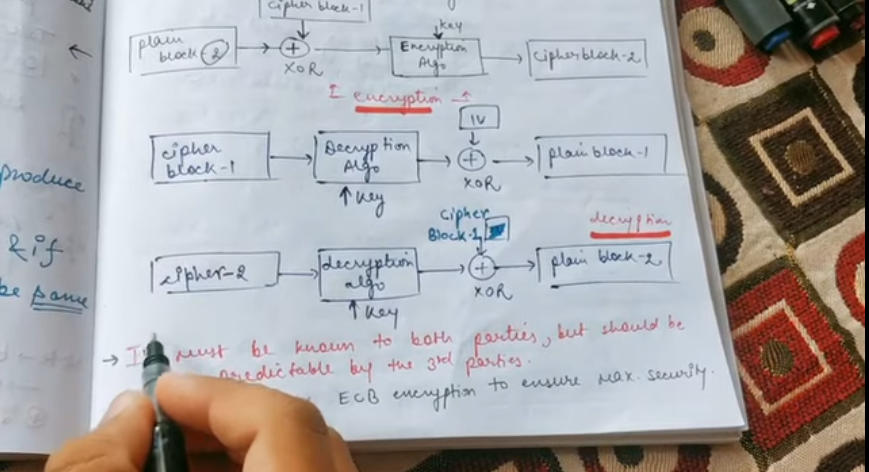 cipher block-1
key
plain block 2
+
XOR
Encryption Algo
cipher block-2
encryption
IV
cipher block-1
Decryption Algo
+
XOR
plain block-1
key
produce
cipher Block-1
decryption
& if
cipher-2
decryption algo
+
XOR
plain block-2
be same
key
→ must be known to both parties, but should be
predictable by the 3rd parties.
ECB encryption to ensure max. security.